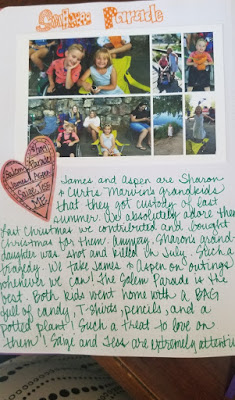 Salem Parade
Salem
Parade
James & Aspen
Saige, Tess
James and Aspen are Sharon
+ Curtis Marvin's grandkids
that they got custody of last
summer. We absolutely adore them
Last Christmas we contributed and bought
Christmas for them. Anyway, Sharon's grand-
daughter was shot and killed in July. Such a
tragedy. We take James + Aspen on outings
whenever we can! The Salem Parade is the
best. Both kids went home with a BAG
full of candy, T-shirts, pencils, and a
potted plant! Such a treat to love on
them! Saige and Tess are extremely attentive